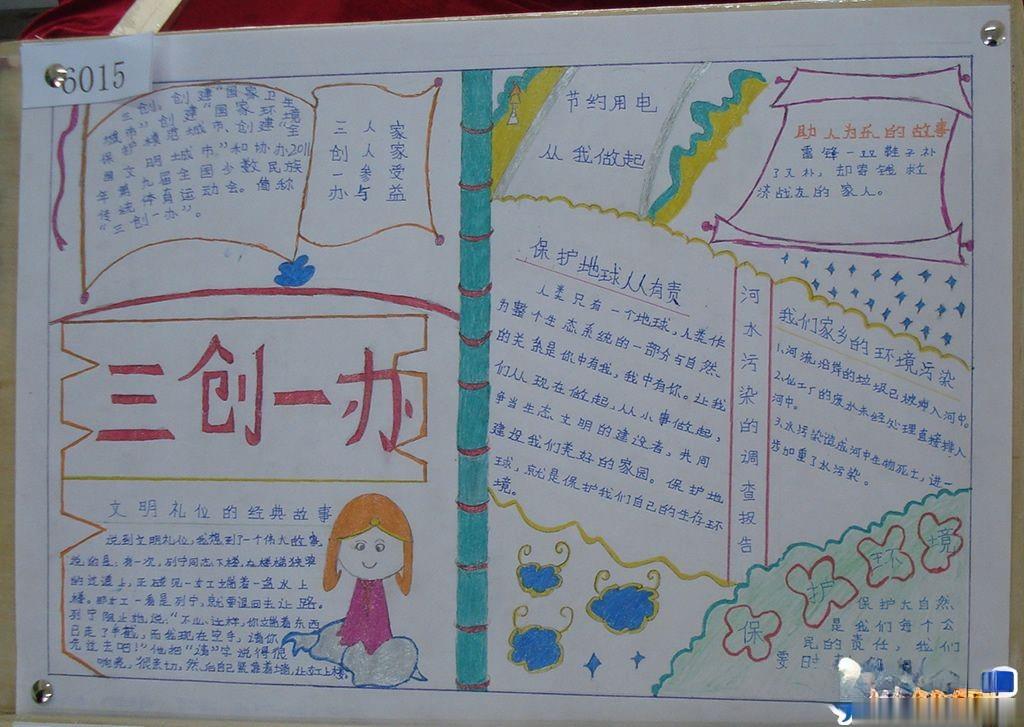 6015
三创,创建“国家卫生
城市”创建“国家环境
保护模范城市,创建“全
国文明城市”和协办2011
年第九届全国少数民族
传统体育运动会。简称
“三创一办”。
三创一办
人人参与
家家受益
三创一办
文明礼仪的经典故事
说到文明礼仪,我想到了一个伟大故事,
有一次,列宁同志下楼,在楼梯狭窄
的过道上,正碰见一女工端着一盆水上
楼。那女工一看是列宁,就要退回去让路。
列宁阻止她说:“不必这样,你端着东西
已走了半截,而我现在空手,请你
先过去吧!”他把“请”字说得很
响亮,很亲切。然后自己紧靠着墙,让女工上楼。
节约用电
从我做起
助人为乐的故事
雷锋一双鞋子补
了又补,却寄钱救
济战友的家人。
保护地球人人有责
人类只有一个地球,人类作
为整个生态系统的一部分与自然
的关系是你中有我,我中有你。让我
们从现在做起,从小事做起,
争当生态文明的建设者,共同
建设我们美好的家园。保护地
球,就是保护我们自己的生存环
境。
河水污染的调查报告
我们家乡的环境污染
1.河流沿岸的垃圾已被排入河中。
2.化工厂的废水未经处理直接排入
河中。
3.水污染造成河中生物死亡,进一
步加重了水污染。
保护环境
保护大自然,
是我们每个公
民的责任,我们
要日